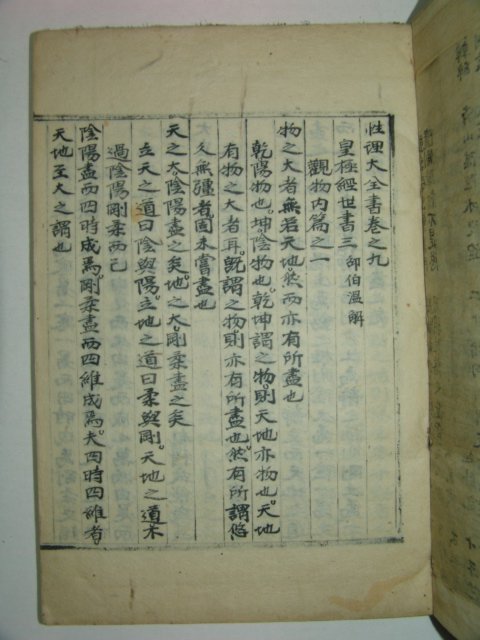 性理大全書卷之九
皇極經世書三 邵伯溫解
觀物內篇之一
物之大者無若天地然而亦有所盡也
乾陽物也坤陰物也乾坤謂之物則天地亦物也天地
有物之大者耳旣謂之物則亦有所盡也然有所謂悠
久無疆者固未嘗盡也
天之大陰陽盡之矣地之大剛柔盡之矣
立天之道曰陰與陽立地之道曰柔與剛天地之道木
過陰陽剛柔而已
陰陽盡而四時成焉剛柔盡而四維成焉夫四時四維者
天地至大之謂也